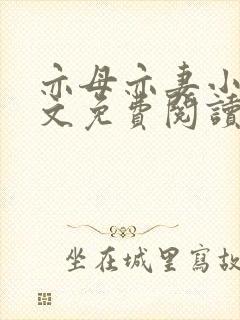 亦母亦妻小
文免費閱讀
坐在城里寫故